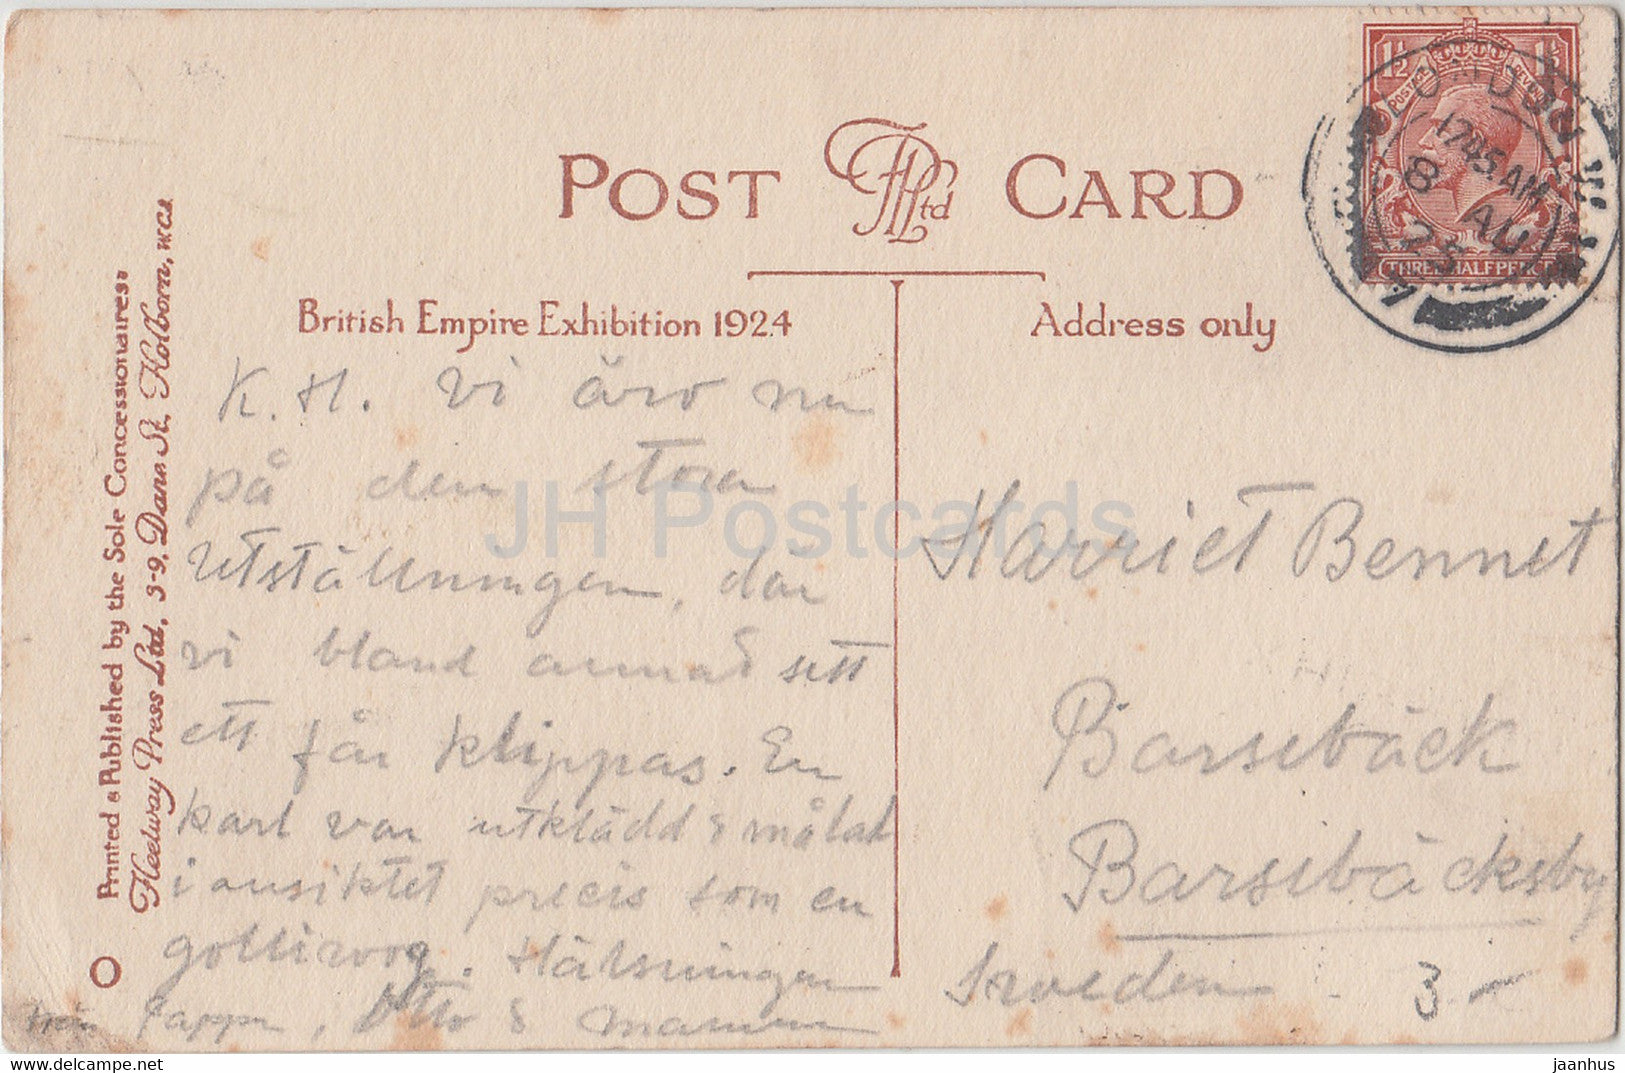 POST CARD
British Empire Exhibition 1924
Address only
Printed & Published by the Sole Concessionaires:
Fleetway Press Ltd, 3-9, Dane St, Holborn, W.C.1
K. H. Vi äro nu
på den stora
utställningen, där
vi bland annat sett
ett får klippas. En
karl var utklädd & målad
i ansiktet precis som en
golliwog. Hälsningen
från Pappa, Otto & mamma
Harriet Bennet
Barsebäck
Barsebäcksby
Sweden
3-
O
1½
1½
POSTAGE
REVENUE
THREE HALFPENCE
LONDON
12.45 AM
8 AU
25
JH Postcards
www.delcampe.net
jaanhus